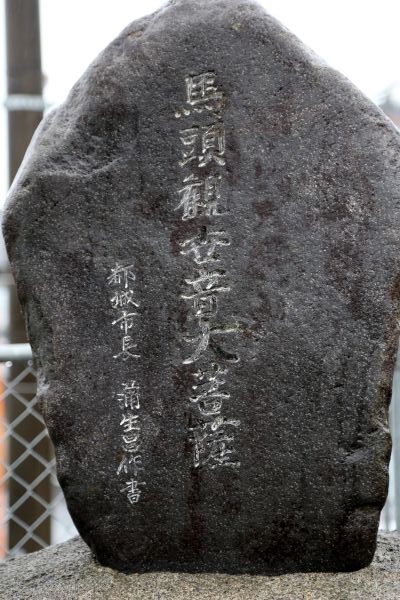 馬頭觀世音大菩薩
都城市長 蒲生昌作書